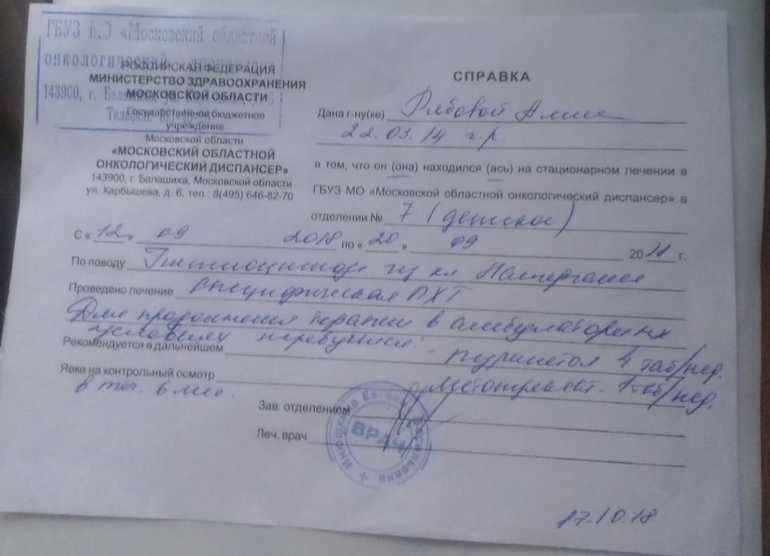 ГБУЗ М.О «Московский областной
онкологический диспансер
143900, г. Балашиха,
РОССИЙСКАЯ ФЕДЕРАЦИЯ
МИНИСТЕРСТВО ЗДРАВООХРАНЕНИЯ
МОСКОВСКОЙ ОБЛАСТИ
Государственное бюджетное
учреждение
Московской области
«МОСКОВСКИЙ ОБЛАСТНОЙ
ОНКОЛОГИЧЕСКИЙ ДИСПАНСЕР»
143900, г. Балашиха, Московской области
ул. Карбышева, д. 6, тел.: 8(495) 646-82-70
СПРАВКА
Дана г-ну(ке) Рябовой
22.03.14 г.р.
в том, что он (она) находился (ась) на стационарном лечении в
ГБУЗ МО «Московской областной онкологический диспансер» в
отделении № 7 (детское)
С « 12 » 09 2018 по « 20 » 09 2018 г.
По поводу Гистиоцитоз из кл Лангерганса
Проведено лечение специфическая ПХТ
Для продолжения терапии в амбулаторных
условиях нуждается:
Рекомендуется в дальнейшем пуринетол 4 таб/нед.
Явка на контрольный осмотр метотрексат - 1 таб/нед.
в теч. 6 мес.
Зав. отделением
Леч. врач
ВРАЧ
17.10.18